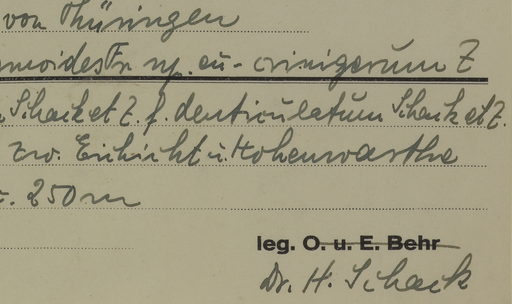 von Thüringen
moidesFr. ssp. eu-crinigerum Z
Schack et Z. f. denticulatum Schack et Z.
zw. Eichicht u. Hohenwarthe
250 m
leg. O. u. E. Behr
Dr. H. Schack